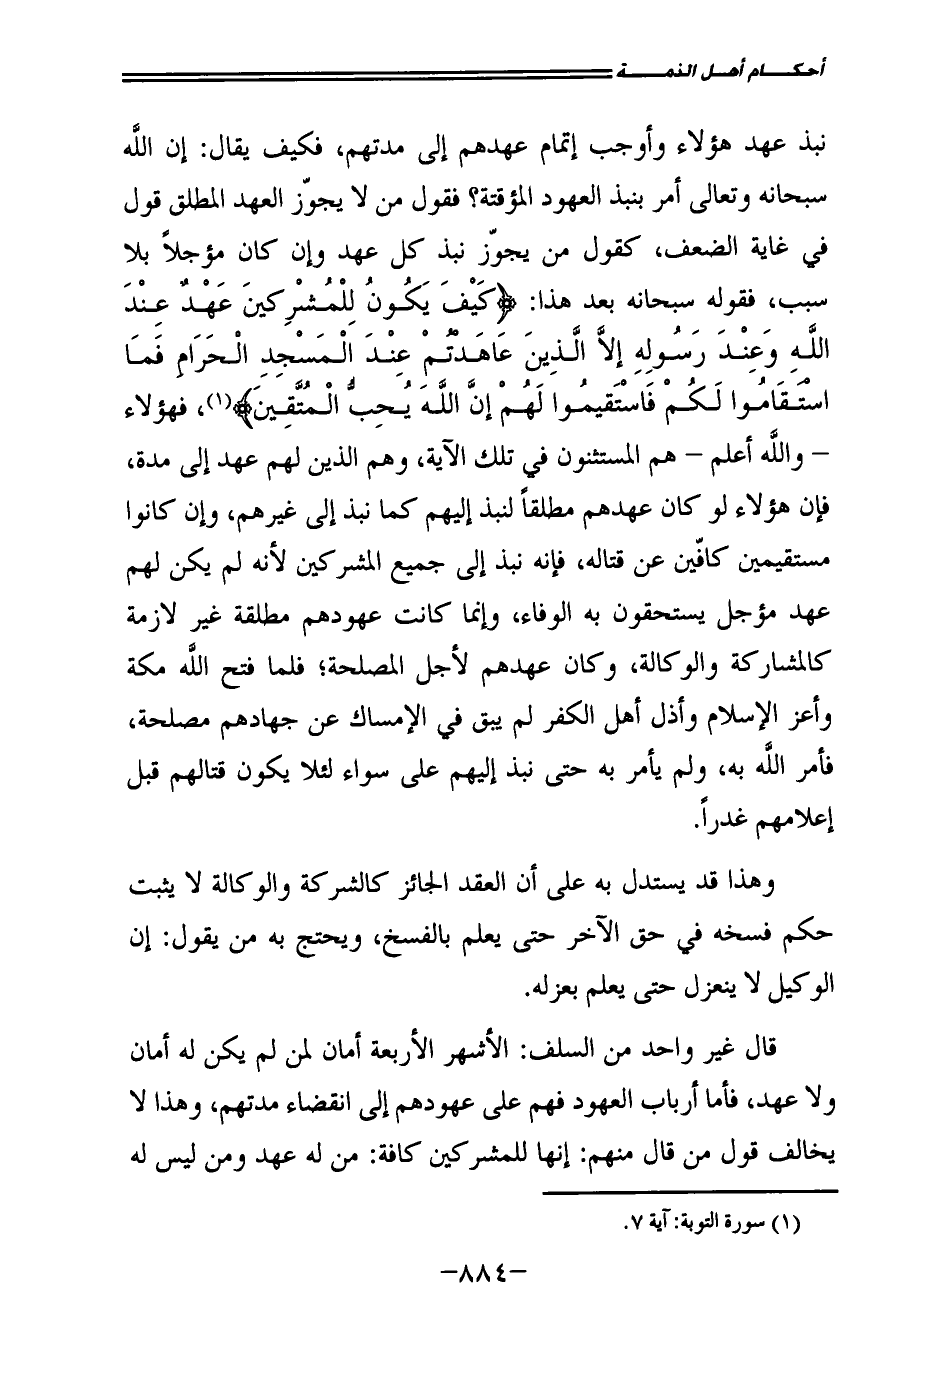 أحكـــام أهـل الذمـــة
نبذ عهد هؤلاء وأوجب إتمام عهدهم إلى مدتهم، فكيف يقال: إن اللَّه
سبحانه وتعالى أمر بنبذ العهود المؤقتة؟ فقول من لا يجوّز العهد المطلق قول
في غاية الضعف، كقول من يجوّز نبذ كل عهد وإن كان مؤجلاً بلا
سبب، فقوله سبحانه بعد هذا: ﴿كَيْفَ يَكُونُ لِلْمُشْرِكِينَ عَهْدٌ عِنْدَ
اللَّهِ وَعِنْدَ رَسُولِهِ إِلاَّ الَّذِينَ عَاهَدْتُمْ عِنْدَ الْمَسْجِدِ الْحَرَامِ فَمَا
اسْتَقَامُوا لَكُمْ فَاسْتَقِيمُوا لَهُمْ إِنَّ اللَّهَ يُحِبُّ الْمُتَّقِينَ﴾(١)، فهؤلاء
– واللَّه أعلم – هم المستثنون في تلك الآية، وهم الذين لهم عهد إلى مدة،
فإن هؤلاء لو كان عهدهم مطلقاً لنبذ إليهم كما نبذ إلى غيرهم، وإن كانوا
مستقيمين كافّين عن قتاله، فإنه نبذ إلى جميع المشركين لأنه لم يكن لهم
عهد مؤجل يستحقون به الوفاء، وإنما كانت عهودهم مطلقة غير لازمة
كالمشاركة والوكالة، وكان عهدهم لأجل المصلحة؛ فلما فتح اللَّه مكة
وأعز الإسلام وأذل أهل الكفر لم يبق في الإمساك عن جهادهم مصلحة،
فأمر اللَّه به، ولم يأمر به حتى نبذ إليهم على سواء لئلا يكون قتالهم قبل
إعلامهم غدراً.
وهذا قد يستدل به على أن العقد الجائز كالشركة والوكالة لا يثبت
حكم فسخه في حق الآخر حتى يعلم بالفسخ، ويحتج به من يقول: إن
الوكيل لا ينعزل حتى يعلم بعزله.
قال غير واحد من السلف: الأشهر الأربعة أمان لمن لم يكن له أمان
ولا عهد، فأما أرباب العهود فهم على عهودهم إلى انقضاء مدتهم، وهذا لا
يخالف قول من قال منهم: إنها للمشركين كافة: من له عهد ومن ليس له
(١) سورة التوبة: آية ٧.
–٨٨٤–